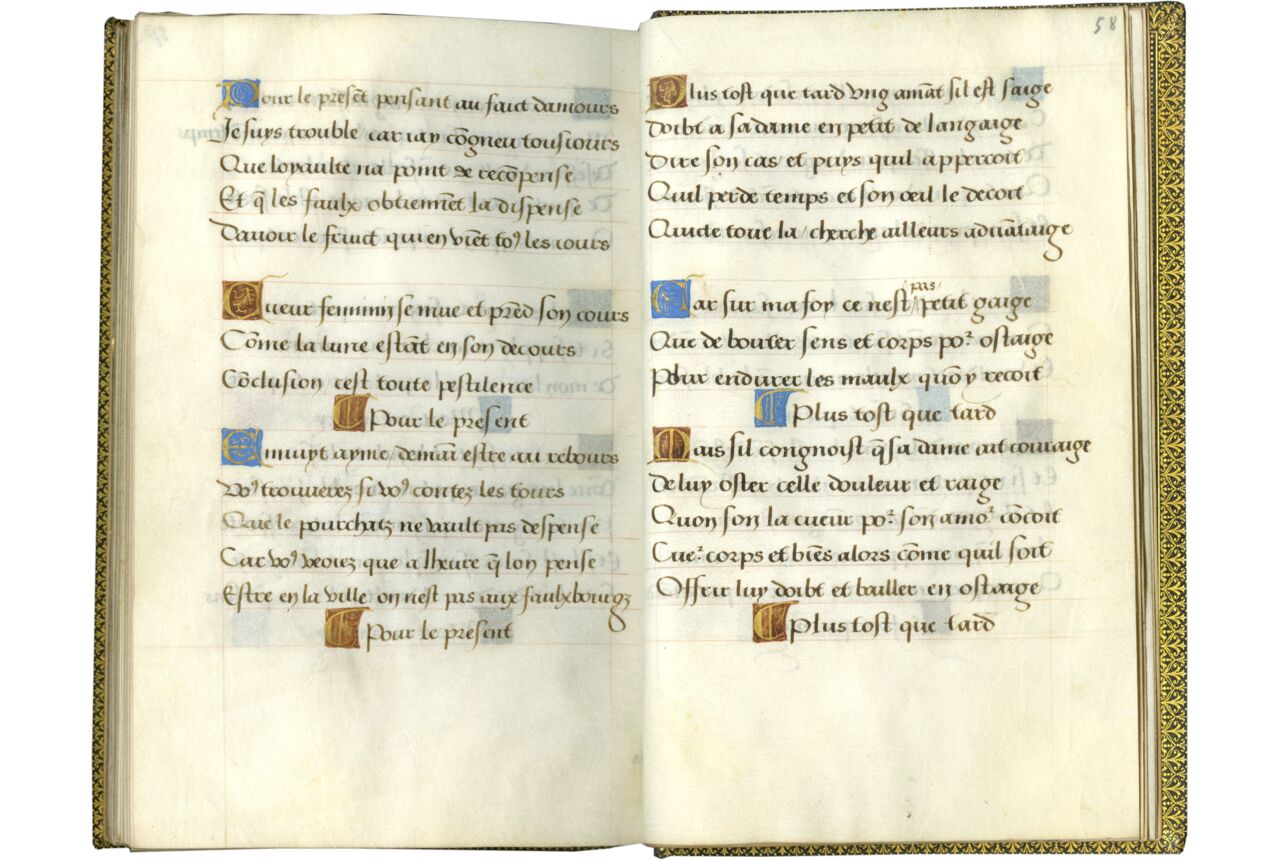 Pour le presẽt pensant au faict damours
Je suys trouble car iay cõgneu tousiours
Que loyaulte na point de recõpense
Et q̃ les faulx obtiennẽt la dispense
Dauoir le fruict qui en viẽt toꝰ les iours
Cueur feminin se mue et prẽd son cours
Cõme la lune estãt en son decours
Cõclusion cest toute pestilence
Pour le present
Ennuyt ayme / demaĩ estre au rebours
Voꝰ trouuerez si voꝰ contez les tours
Que le pourchatz ne vault pas despense
Car voꝰ veoiez que a lheure q̃ lon pense
Estre en la ville on nest pas aux faulxbourgz
Pour le present
58
Plus tost que tard vng amãt sil est saige
Doibt a sa dame en petit de langaige
Dire son cas / et puys quil appercoit
Quil perde temps et son oeil le decoit
Quicte tout la / cherche ailleurs aduãtaige
Car sur ma foy ce nest pas petit gaige
Que de bouter sens et corps poꝛ̉ ostaige
Pour endurer les maulx quon y recoit
Plus tost que tard
Mais sil congnoist q̃ sa dame ait couraige
De luy oster celle douleur et raige
Quon son la cueur poꝛ̉ son amoꝛ̉ cõcoit
Cueꝛ̉ corps et biẽs alors cõme quil soit
Offrir luy doibt et bailler en ostaige
Plus tost que tard